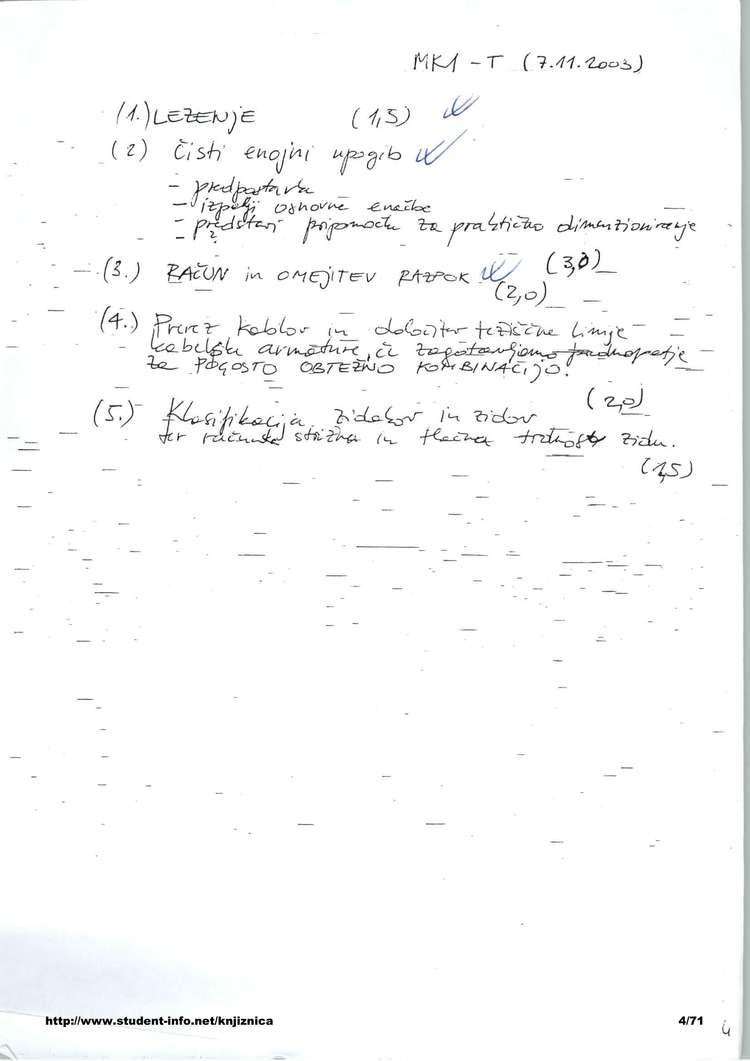 MK1 - T (7.11.2003)
(1.) LEZENJE (1,5)
(2) Čisti enojni upogib
- predpostavke
- izpelji osnovne enačbe
- predstavi pripomočke za praktično dimenzioniranje
(3,0)
(3.) RAČUN in OMEJITEV RAZPOK
(2,0)
(4.) Prerez kablov in določitev težiščne linije
kabelske armature, če zagotavljamo prednapetje
za POGOSTO OBTEŽNO KOMBINACIJO.
(2,0)
(5.) Klasifikacija zidakov in zidov
ter računska strižna in tlačna trdnost zidu.
(1,5)
http://www.student-info.net/knjiznica
4/71
4